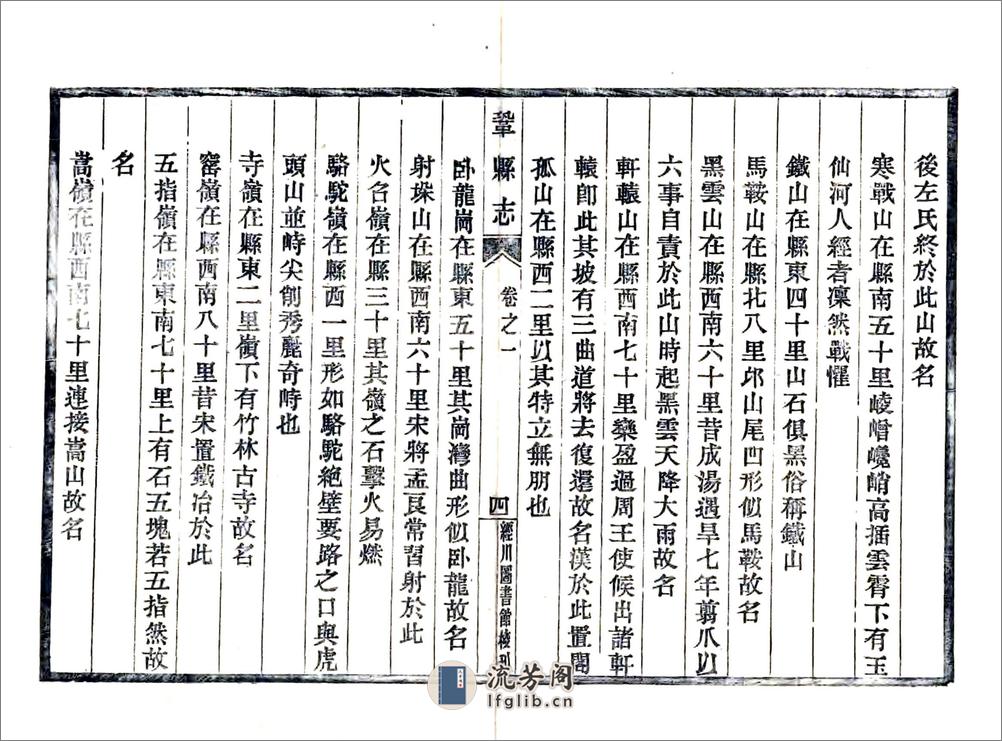 後左氏終於此山故名
寒戰山在縣南五十里崚嶒巉峭高插雲霄下有玉
仙河人經者凜然戰懼
鐵山在縣東四十里山石俱黑俗稱鐵山
馬鞍山在縣北八里邙山尾凹形似馬鞍故名
黑雲山在縣西南六十里昔成湯遇旱七年翦爪以
六事自責於此山時起黑雲天降大雨故名
軒轅山在縣西南七十里欒盈過周王使候出諸軒
轅卽此其坡有三曲道將去復還故名漢於此置關
孤山在縣西二里以其特立無朋也
鞏縣志
卷之一
四
經川圖書館校刊
臥龍崗在縣東五十里其崗灣曲形似臥龍故名
射垛山在縣西南六十里宋將孟良常習射於此
火名嶺在縣三十里其嶺之石擊火易燃
駱駝嶺在縣西一里形如駱駝絶壁要路之口與虎
頭山並峙尖削秀麗奇峙也
寺嶺在縣東二里嶺下有竹林古寺故名
窰嶺在縣西南八十里昔宋置鐵冶於此
五指嶺在縣東南七十里上有石五塊若五指然故
名
嵩嶺在縣西南七十里連接嵩山故名
流芳阁
lfglib.cn